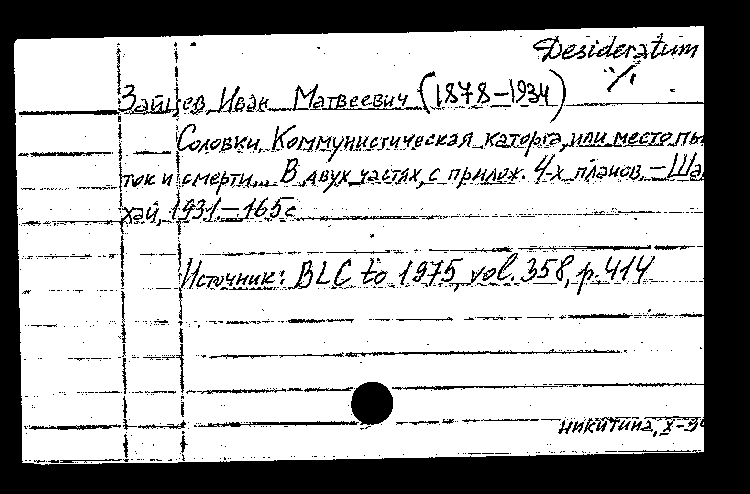 Desideratum
"/.
Зайцев, Иван Матвеевич (1878–1934)
Соловки. Коммунистическая каторга, или место пы-
ток и смерти... В двух частях, с прилож. 4-х планов. – Шан
хай, 1931. – 165 с.
Источник: BLC to 1975, vol. 358, p. 414
Никитина, X-94